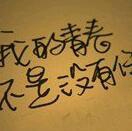 我的青春
不是没有你